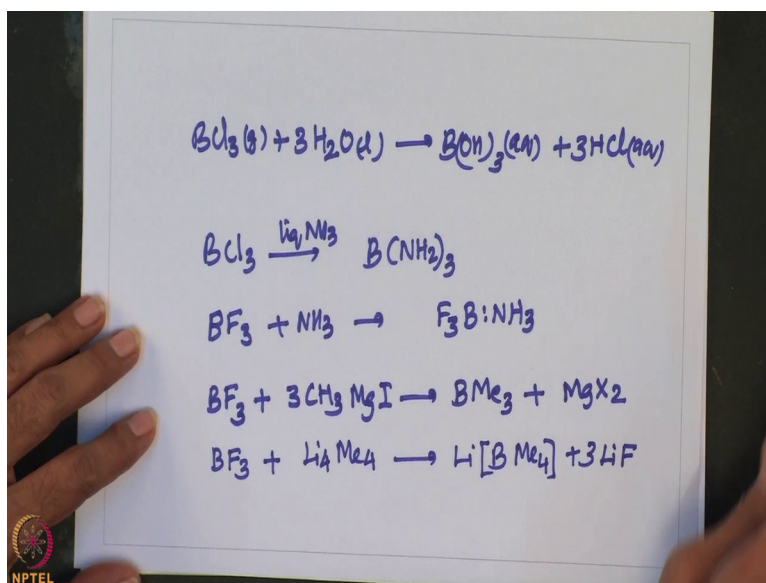 BCl3(g) + 3H2O(l) → B(OH)3(aq) + 3HCl(aq)
BCl3 liq NH3 → B(NH2)3
BF3 + NH3 → F3B:NH3
BF3 + 3CH3MgI → BMe3 + MgX2
BF3 + Li4Me4 → Li[BMe4] + 3LiF
NPTEL